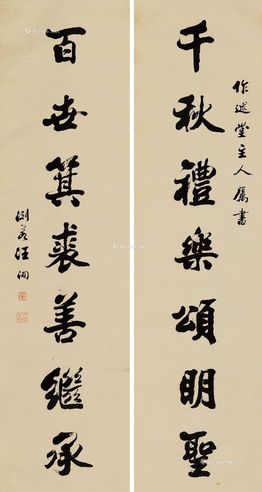 作述堂主人属書
千秋禮樂頌明聖
百世箕裘善繼承
汪洵